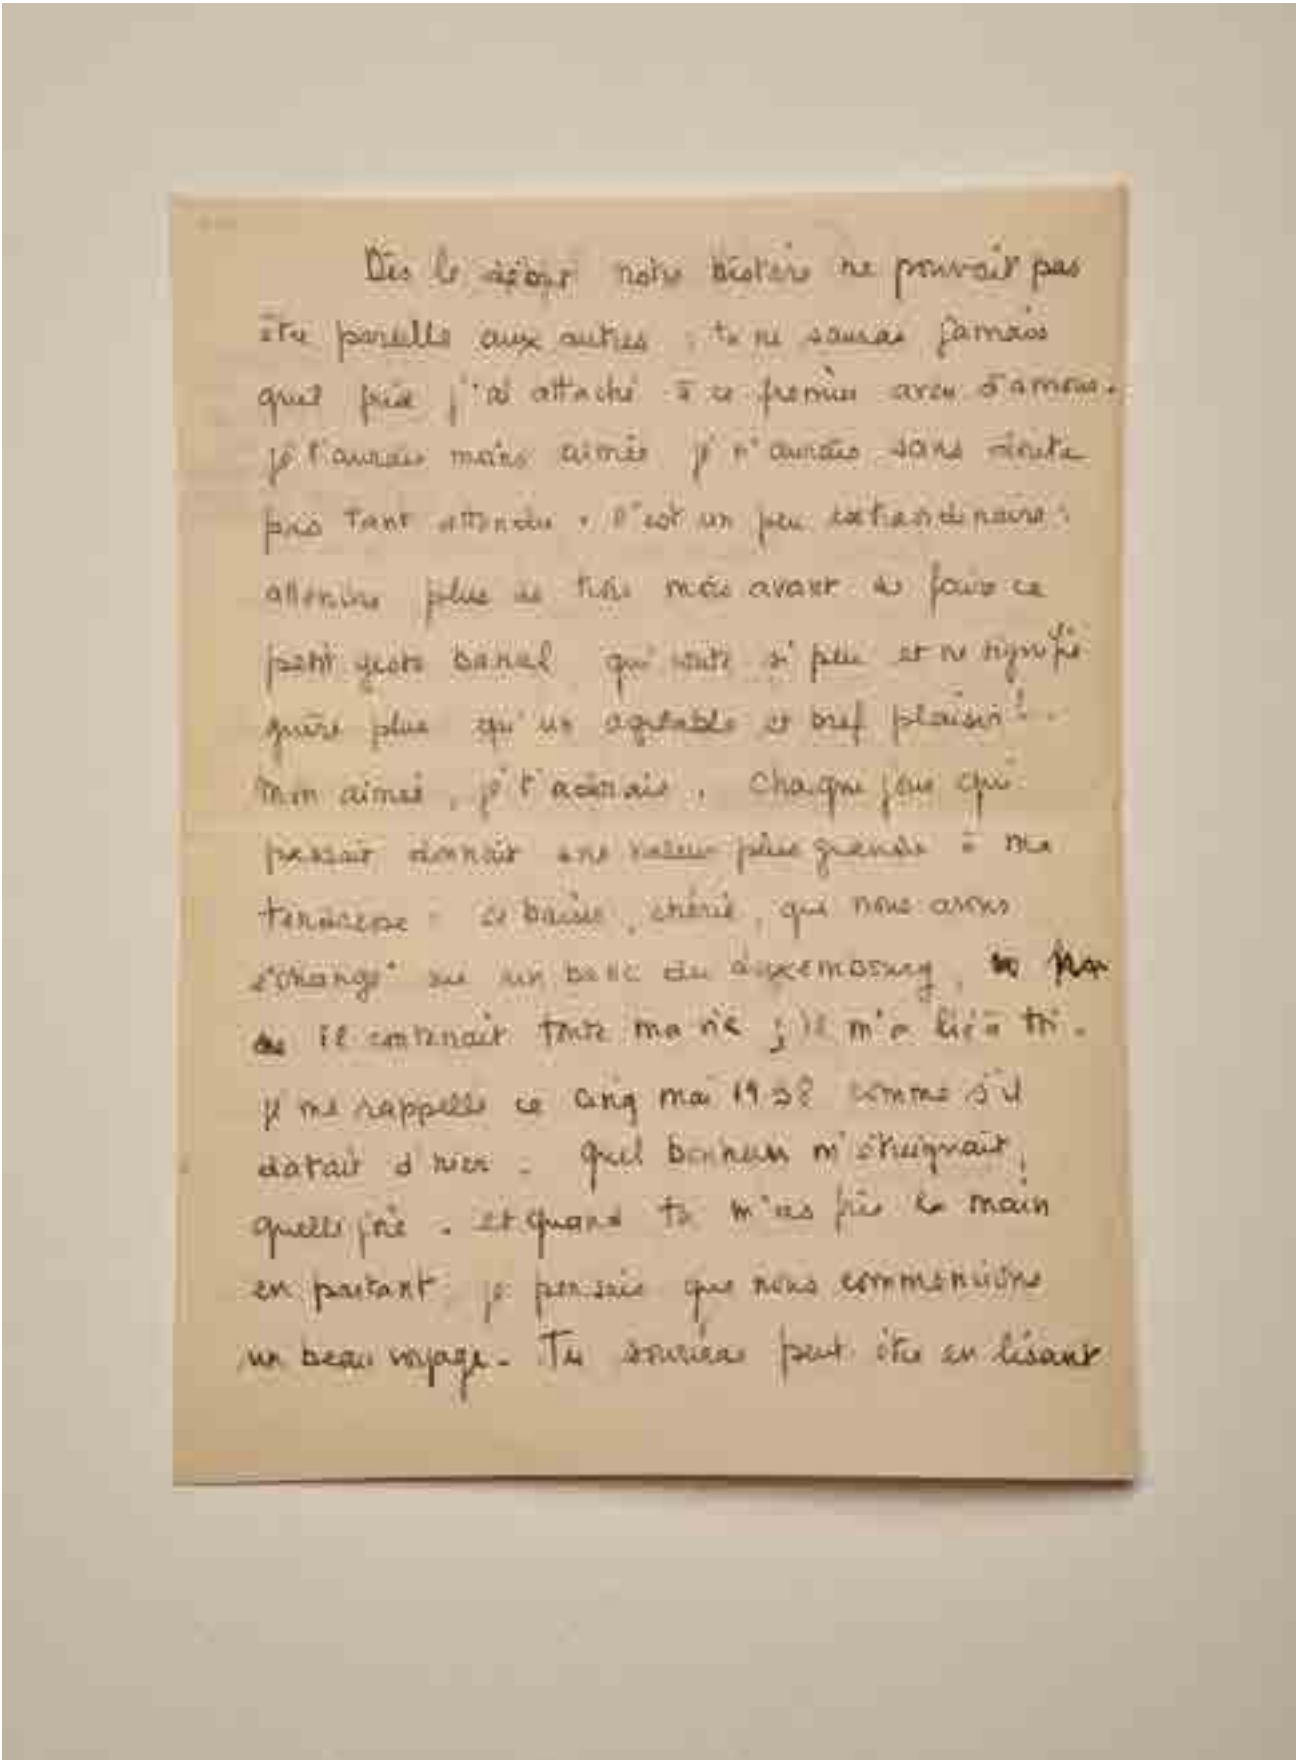 Dès le début notre histoire ne pouvait pas
être pareille aux autres : tu ne sauras jamais
quel prix j'ai attaché à ce premier aveu d'amour.
je t'aurais moins aimée je n'aurais sans doute
pas tant attendu. C'est un peu extraordinaire :
attendre plus de trois mois avant de faire ce
petit geste banal qui coûte si peu et ne signifie
guère plus qu'un agréable et bref plaisir !
Mon aimée, je t'adorais. Chaque jour qui
passait donnait une valeur plus grande à ma
tendresse : ce baiser, chérie, que nous avons
échangé sur un banc du Luxembourg,
il contenait toute ma vie ; il m'a lié à toi.
je me rappelle ce cinq mai 1938 comme s'il
datait d'hier. Quel bonheur m'étreignait,
quelle joie. et quand tu m'as pris la main
en partant, je pensais que nous commencions
un beau voyage. Tu souriras peut être en lisant